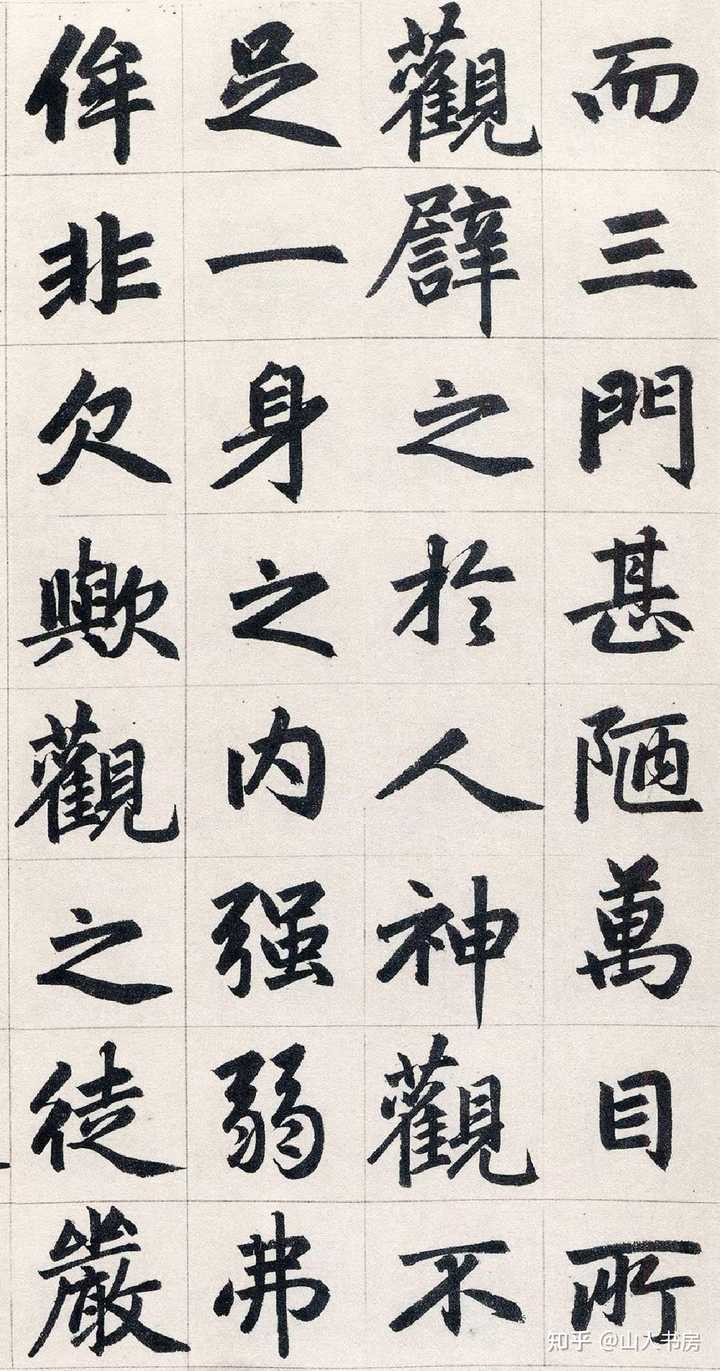 而三門甚陋萬目所
觀譬之於人神觀不
足一身之内强弱弗
侔非欠歟觀之徒嚴
知乎 @山人书房